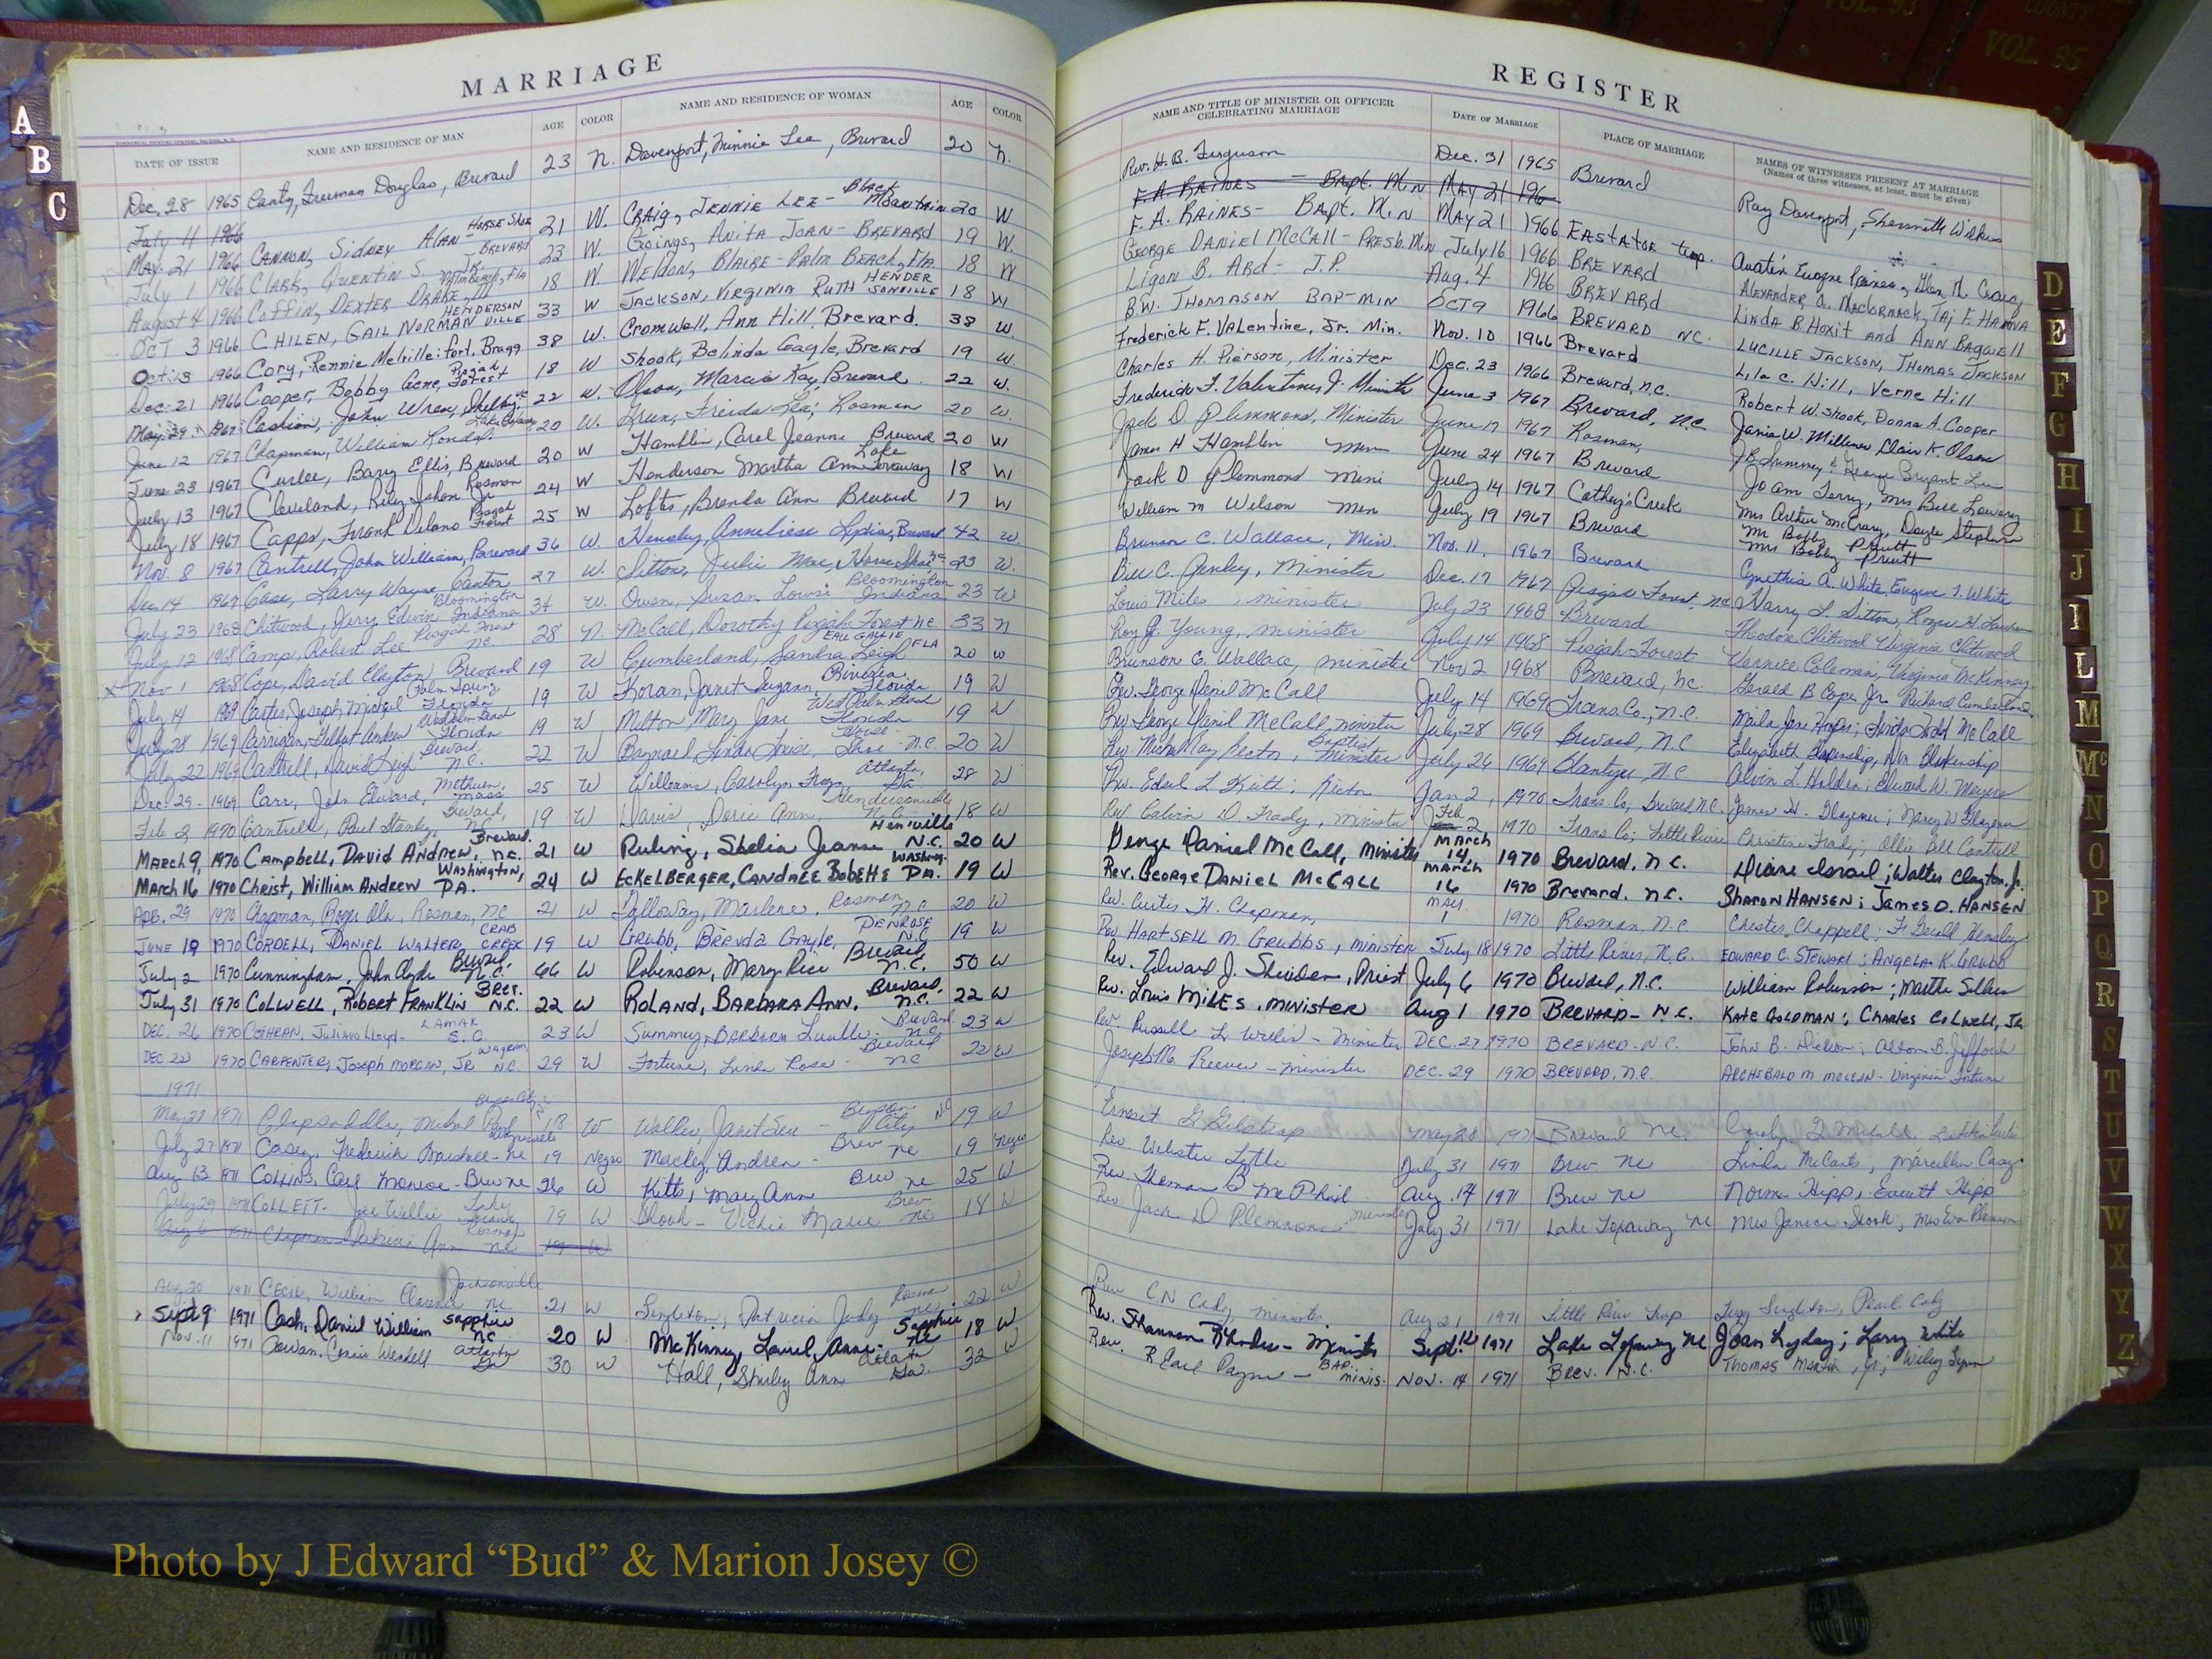 COUNTY
VOL. 93
VOL. 95
A
B
C
MARRIAGE
DATE OF ISSUE NAME AND RESIDENCE OF MAN AGE COLOR NAME AND RESIDENCE OF WOMAN AGE COLOR
Dec. 28 1965 Canty, Freeman Douglas, Brevard 23 N. Davenport, Minnie Lee, Brevard 20 N.
July 11 1966
May. 21 1966 CANNON, Sidney Alan - HORSE Shoe 21 W. CRAig, JENNIE LEE - Black Mountain 20 W
July 1 1966 CLARK, QUENTIN S. JR. - BREVARD 23 W. Goings, Anita JOAN - BREVARD 19 W.
August 4 1966 Coffin, DEXTER DRAKE, III Palm Beach, Fla 18 W. WELDON, BLAIRE - Palm BEACH, Fla. 18 W
OCT 3 1966 CHILEN, GAIL NORMAN HENDERSONVILLE 33 W JACKSON, VIRGINIA RUTH HENDERSONVILLE 18 W
Oct. 13 1966 Cory, Rennie Melville: Fort. Bragg 38 W. Cromwell, Ann Hill, Brevard. 38 W.
Dec. 21 1966 Cooper, Bobby Gene, Pisgah Forest 18 W Shook, Belinda Gayle, Brevard 19 W.
May. 29. 1967 Cashion, John Wren, Shelby NC 22 W. Olson, Marcia Kay, Brevard. 22 W.
June 12 1967 Chapman, William Rondal. Lake Toxaway 20 W. Green, Freida Lea; Rosman 20 W.
June 23 1967 Curlee, Barry Ellis, Brevard 20 W Hamblin, Carol Jeanne Brevard 20 W
July 13 1967 Cleveland, Riley Isham Jr Rosman 24 W Henderson Martha Ann Lake Toxaway 18 W
July 18 1967 Capps, Frank Delano Pisgah Forest 25 W Loftis, Brenda Ann Brevard 17 W
Nov. 8 1967 Cantrell, John William, Brevard 36 W. Hensley, Anneliese Lydia, Brevard 42 W
Dec 14 1967 Case, Larry Wayne Canton 27 W. Sitton, Julie Mae, Horse Shoe NC 23 W.
July 23 1968 Chitwood, Jerry Edwin Bloomington Indiana 34 W. Owen, Susan Louise Bloomington Indiana 23 W
July 12 1968 Camp, Robert Lee Pisgah Forest NC. 28 N. McCall, Dorothy Pisgah Forest NC 33 N
Nov 1 1968 Cope, David Clayton Brevard 19 W Cumberland, Sandra Leigh EAU GALLIE FLA 20 W
July 14 1969 Carter, Joseph Michael Palm Springs Florida 19 W Horan, Janet Suzann, Riviera Florida 19 W
July 28 1969 Carrigan, Gilbert Andrew West Palm Beach Florida 19 W Milton Mary Jane West Palm Beach Florida 19 W
July 22 1969 Cantrell, David Leigh Brevard N.C. 22 W Linda Louise, Horse Shoe N.C. 20 W
Dec. 29 - 1969 Carr, John Edward, Methuen, Mass 25 W Williams, Carolyn Atlanta, Ga 28 W
Feb 2 1970 Cantrell, Paul Stanley, Brevard, N.C. 19 W Davis, Doris Ann, Hendersonville N.C. 18 W
MARCH 9, 1970 Campbell, David Andrew, Brevard. N.C. 21 W Ruling, Shelia Jeanne Hen'ville N.C. 20 W
March 16 1970 Christ, William Andrew Washington, PA. 24 W EckelBERGER, CANDACE BobETTE Washing. PA. 19 W
APR. 29 1970 Chapman, Roger Ola, Rosman, NC 21 W Galloway, Marlene, Rosman, N.C 20 W
JUNE 19 1970 CORDELL, DANIEL WALTER, CRAB CREEK 19 W GRUBB, BRENDA GAYLE, PENROSE N.C 19 W
July 2 1970 Cunningham, John Clyde Brevard, N.C. 66 W Robinson, Mary Rice Brevard N.C. 50 W
July 31 1970 COLWELL, ROBERT FRANKLIN BREV. N.C. 22 W ROLAND, BARBARA ANN, Brevard, N.C. 22 W
DEC. 26 1970 COTHRAN, Julious Lloyd - LAMAR S.C. 23 W Summey, BARBARA Lucille - Brevard N.C. 23 W
DEC 22 1970 CARPENTER, JOSEPH MORGAN, JR WAGRAM, N.C. 29 W Fortune, Linda Rose - Brevard NC 22 W
1971
May 28 1971 Clapsaddle, Michael Paul 18 W Walker, Janet Sue - City NC 19 W
July 27 1971 Casey, Frederick - NC 19 Negro Mackey, Andrea - Brev NC 19 Negro
Aug 13 1971 COLLINS, Carl Monroe - Brev NC 26 W Kitts, Mary Ann Brev NC 25 W
July 29 1971 COLLETT - Joe Willie Lake Toxaway 19 W Shook - Vickie Marie Brev NC 18 W
Aug 6 1971 Chapman Patricia Ann Rosman NC 19 W
Aug 20 1971 CECIL, William Clarence Jacksonville NC. 21 W Singleton, Patricia Judy Rosman NC. 22 W
Sept 9 1971 Cash, Daniel William Sapphire NC 20 W McKinney, Laurel Anne - Sapphire NC 18 W
Nov. 11 1971 Cowan, Connie Wendell Atlanta Ga 30 W Hall, Shirley Ann Atlanta Ga. 32 W
REGISTER
NAME AND TITLE OF MINISTER OR OFFICER CELEBRATING MARRIAGE DATE OF MARRIAGE PLACE OF MARRIAGE NAMES OF WITNESSES PRESENT AT MARRIAGE
(Names of three witnesses, at least, must be given)
Rev. H. B. Ferguson Dec. 31 1965 Brevard Ray Davenport, Wilkes
F. A. RAINES - Bapt. Min MAY 21 196
F. A. RAINES - BApt. MiN MAY 21 1966 EASTATOE Twp. Austin Eugene Raines, Glen M. Craig
GEORGE DANIEL McCALL - PRESB. Min July 16 1966 BREVARD ALEXANDER A. MacCORMACK, TAJ F. HANNA
Ligon B. ARD - J.P. Aug. 4 1966 BREVARD Linda B Hoxit and ANN BAgwell
B.W. THOMASON BAP-MIN OCT 9 1966 BREVARD NC. LUCILLE JACKSON, THOMAS JACKSON
Frederick F. Valentine, Jr. Min. Nov. 10 1966 Brevard Lila C. Hill, Verne Hill
Charles H. Pierson, Minister Dec. 23 1966 Brevard, N.C. Robert W. Shook, Donna A. Cooper
Frederick F. Valentine, Jr. Minister June 3 1967 Brevard, N.C. Janie W. Millener Clair K. Olson
Jack D Plemmons, Minister June 17 1967 Rosman, J.B. Summey & George Bryant Lee
James H Hamblin Min June 24 1967 Brevard Jo Ann Terry, Mrs Bill Lowery
Jack D Plemmons Mini July 14 1967 Cathey's Creek Mrs Arthur McCrary, Doyle Stephens
William M Wilson Min July 19 1967 Brevard Mr Bobby Pruitt Mrs Bobby Pruitt
Brunson C. Wallace, Min. Nov. 11, 1967 Brevard Cynthia A. White, Eugene T. White
Bill C. Penley, Minister Dec. 17 1967 Pisgah Forest, NC Harry L. Sitton, Roger H.
Louis Miles, minister July 23 1968 Brevard Theodore Chitwood Virginia Chitwood
Roy J. Young, minister July 14 1968 Pisgah Forest Vernice Coleman, Virginia McKinney
Brunson C. Wallace, minister Nov 2 1968 Brevard, NC. Gerald B Cope Jr, Richard Cumberland
Rev. George Daniel McCall July 14 1969 Trans. Co., N.C. Marla Jane Linda Todd McCall
Rev George Daniel McCall minister July 28 1969 Brevard, N.C Elizabeth Blankenship, Don Blankenship
Rev. Rector, Baptist Minister July 26 1969 N.C Alvin L. Holden, Edward W. Meyers
Rev. Edsel L Keith; Rector Jan 2, 1970 Trans. Co, Brevard N.C. James H. Glazener; Nancy W Glazener
Rev Calvin D Frady, minister Feb 2 1970 Trans Co; Little River Christine Frady; Ollie Bell Cantrell
George Daniel McCall, Minister March 14, 1970 Brevard, N.C. Diane Israel; Walter Clayton, Jr.
Rev. GEORGE DANIEL McCALL March 16 1970 Brevard. N.C. SHARON HANSEN; JAMES D. HANSEN
Rev. Curtis H. Chapman, MAY 1 1970 Rosman, N.C. Chester Chappell;
Rev HARTSELL M. GRUBBS, minister July 18 1970 Little River, N.C. EDWARD C. STEWART; ANGELA K. GRUBB
Rev. Edward J. Sheridan, Priest July 6 1970 Brevard, N.C. William Robinson; Martha Sellers
Rev. Louis MILES, MINISTER Aug 1 1970 BREVARD - N.C. KATE GOLDMAN; CHARLES COLWELL, JR
Rev. Russell L. Willis - Minister DEC. 27 1970 BREVARD - N.C. JOHN B. Dickson; B. Jefford
Joseph M. Reeves - minister DEC. 29 1970 BREVARD, N.C. ARCHIBALD M. MCLEAN - Virginia Fortune
Ernest G. Gilstrap May 28 1971 Brevard NC.
Rev Webster Lytle July 31 1971 Brev NC Linda McCants, Marcellus Casey
Rev. Thomas B McPhail Aug. 14 1971 Brev NC Norma Hipp, Everett Hipp
Rev Jack D Plemmons Minister July 31 1971 Lake Toxaway NC Mrs Janice Shook; Mrs Eva Plemmons
Rev CN Cody, minister Aug 21 1971 Little River Twp Singleton, Pearl Cody
Rev. Shannon Rhodes - Minister Sept. 11 1971 Lake Toxaway NC Joan Lyday; Larry White
Rev. R. Earl Payne - BAP. MINIS. NOV. 14 1971 BREV. N.C. THOMAS MARTIN, JR; Wiley
D
E
F
G
H
I
J
I
L
M
Mc
N
O
P
Q
R
S
T
U
V
W
X
Y
Z
Photo by J Edward “Bud” & Marion Josey ©